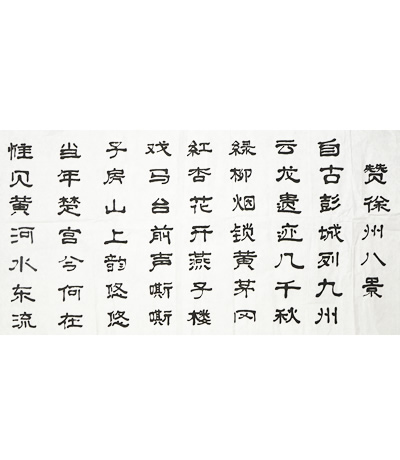 赞徐州八景
自古彭城列九州
云龙遗迹几千秋
绿柳烟锁黄茅冈
红杏花开燕子楼
戏马台前声嘶嘶
子房山上韵悠悠
当年楚宫今何在
惟见黄河水东流